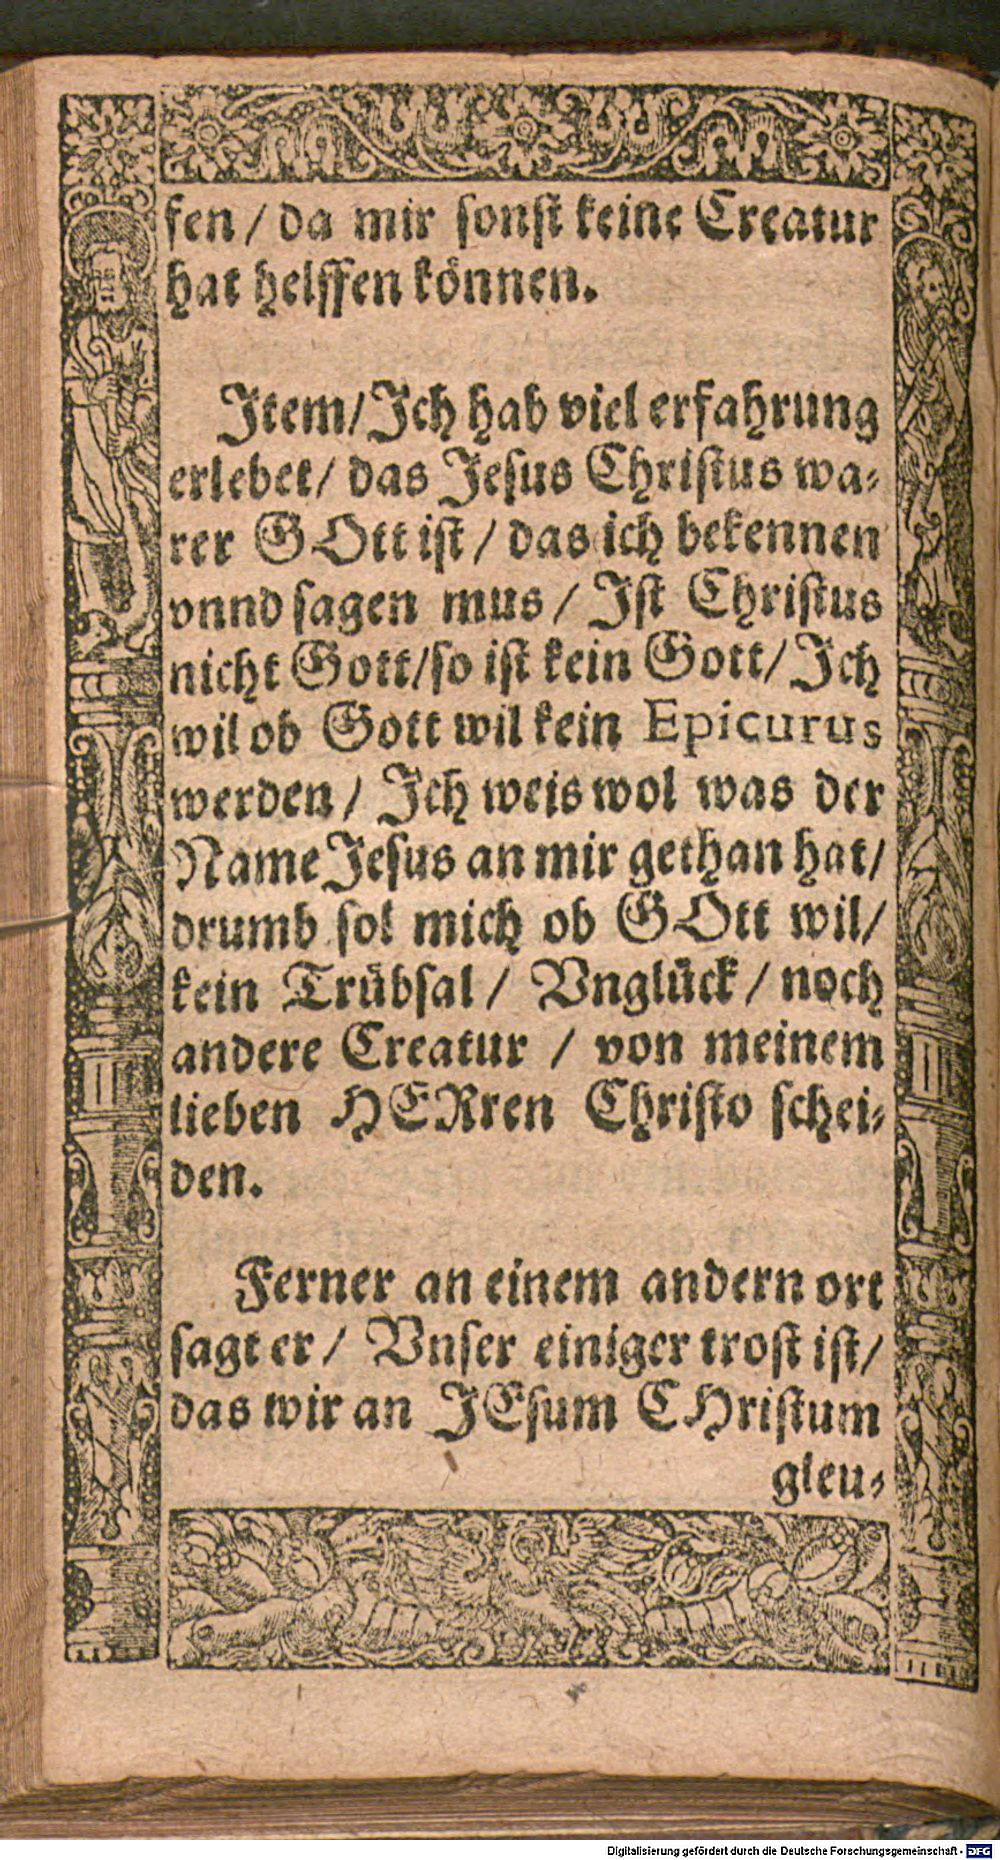 fen / da mir sonst keine Creatur
hat helffen können.
Item / Ich hab viel erfahrung
erlebet / das Jesus Christus wa-
rer GOtt ist / das ich bekennen
vnnd sagen mus / Ist Christus
nicht Gott / so ist kein Gott / Ich
wil ob Gott wil kein Epicurus
werden / Ich weis wol was der
Name Jesus an mir gethan hat /
drumb sol mich ob GOtt wil /
kein Trübsal / Vnglück / noch
andere Creatur / von meinem
lieben HERren Christo schei-
den.
Ferner an einem andern ort
sagt er / Vnser einiger trost ist /
das wir an JEsum CHristum
gleu-
Digitalisierung gefördert durch die Deutsche Forschungsgemeinschaft - DFG